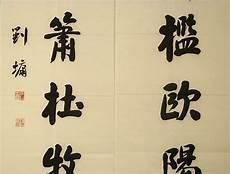 檻歐陽
簫杜牧
劉墉